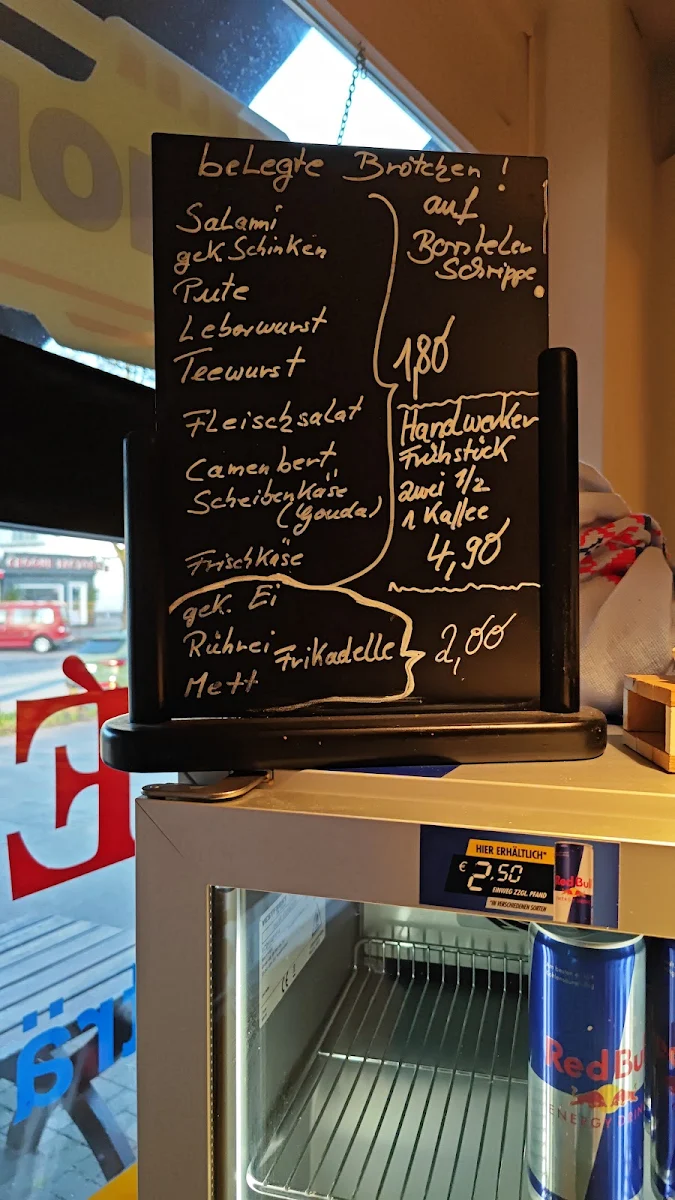 belegte Brötchen !
Salami
gek Schinken
Pute
Leberwurst
Teewurst
Fleischsalat
Camenbert
Scheibenkäse
(Gouda)
Frischkäse
auf
Borsteler
Schrippe.
1,80
Handwerker
Frühstück
zwei 1/2
1 Kaffee
4,90
gek. Ei
Rührei Frikadelle
Mett
2,00
HIER ERHÄLTLICH*
€ 2.50
EINWEG ZZGL. PFAND
*IN VERSCHIEDENEN SORTEN
Red Bull
Red Bu
ENERGY DRIN